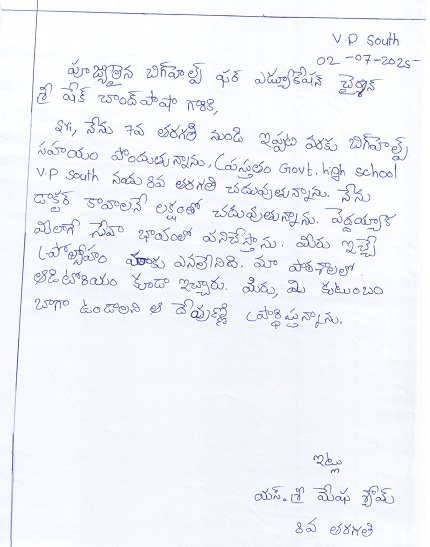 V.P South
02-07-2025-
పూజ్యులైన బిగ్‌హెల్ప్ ఫర్ ఎడ్యూకేషన్ చైర్మన్
శ్రీ షేక్ చాంద్‌పాషా గారికి,
సార్, నేను 7వ తరగతి నుండి ఇప్పటి వరకు బిగ్‌హెల్ప్
సహాయం పొందుతున్నాను. ప్రస్తుతం Govt. high school
V.P South నందు 8వ తరగతి చదువుతున్నాను. నేను
డాక్టర్ కావాలనే లక్ష్యంతో చదువుతున్నాను. పెద్దయ్యాక
మీలాగే సేవా భావంలో పనిచేస్తాను. మీరు ఇచ్చే
ప్రోత్సాహం మాకు ఎనలేనిది. మా పాఠశాలలో
ఆడిటోరియం కూడా ఇచ్చారు. మీరు, మీ కుటుంబం
బాగా ఉండాలని ఆ దేవుణ్ణి ప్రార్థిస్తున్నాను.
ఇట్లు
యస్. శ్రీ మేఘ శ్యామ్
8వ తరగతి